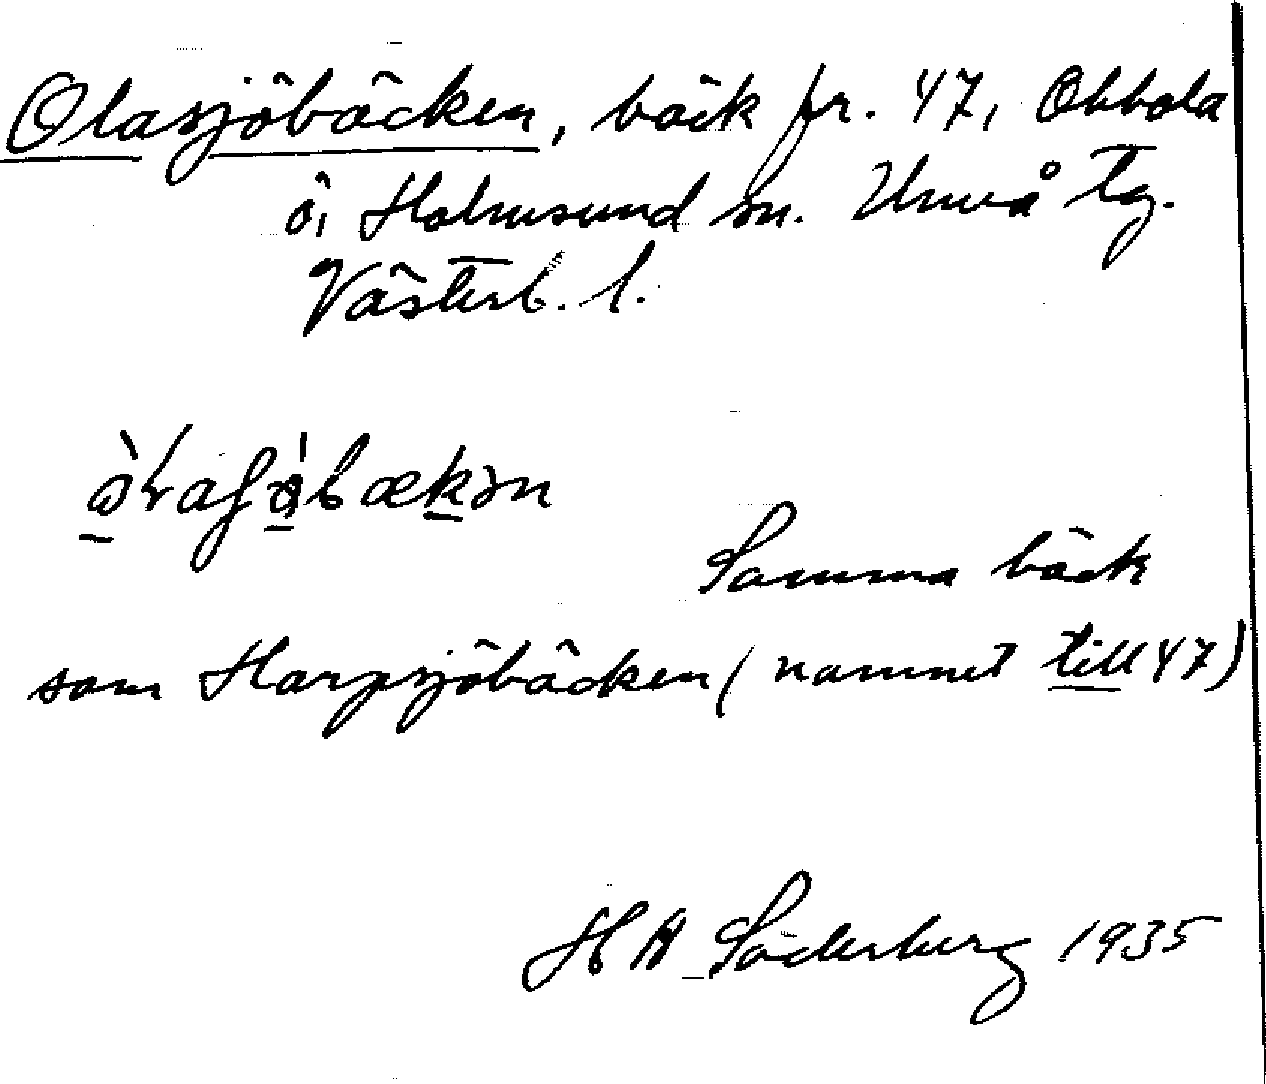 Olasjöbäcken, bäck fr. 47, Obbola
ö, Holmsund sn. Umeå tg.
Västerb. l.
Samma bäck
som Harpsjöbäcken (namnet till 47)
H A Söderberg 1935